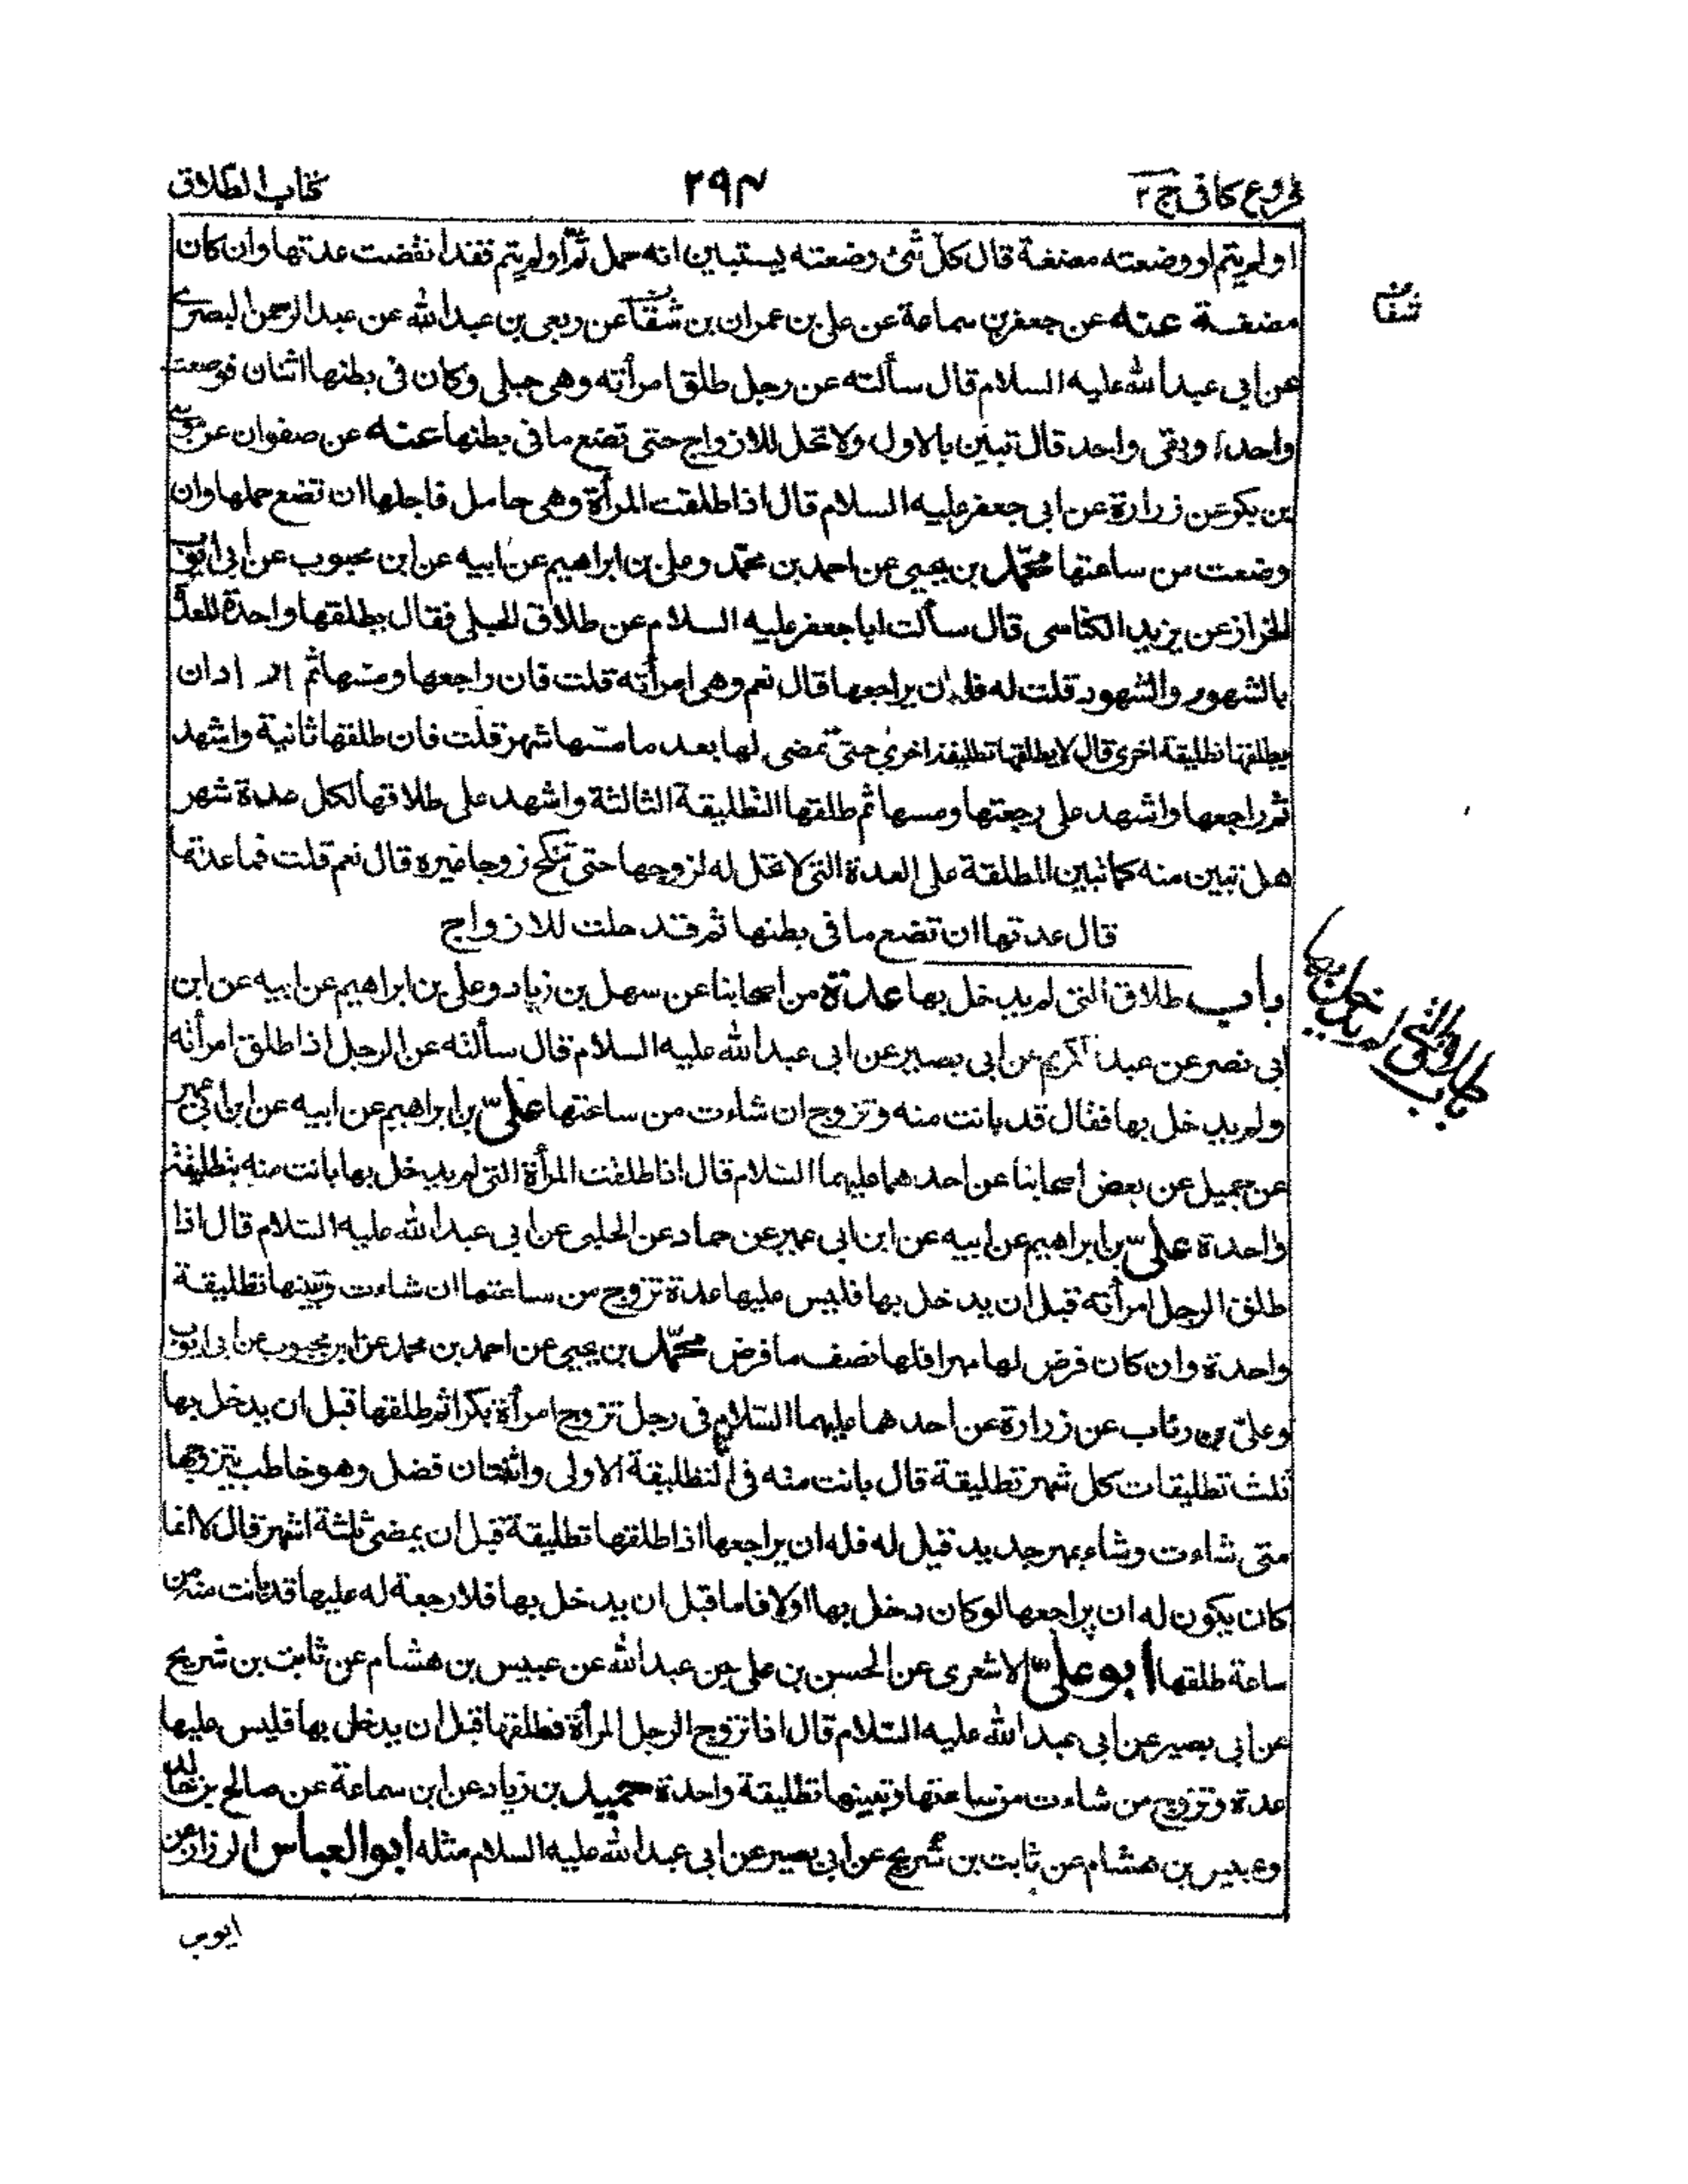 فروع كافى ج ٢
٢٩٣
كتاب الطلاق
او لم يتم او وضعته مضغة قال كل شئ وضعته يستبين انه حمل تم او لم يتم فقد انقضت عدتها وان كان
مضغة عنه عن جعفر بن سماعة عن على بن عمران بن شفا عن ربعى بن عبد الله عن عبد الرحمن البصرى
عن ابى عبد الله عليه السلام قال سألته عن رجل طلق امرأته وهى حبلى وكان فى بطنها اثنان فوضعت
واحدا وبقى واحد قال تبين بالاول ولا تحل للازواج حتى تضع ما فى بطنها عنه عن صفوان عن موسى
بن بكر عن زرارة عن ابى جعفر عليه السلام قال اذا طلقت المرأة وهى حامل فاجلها ان تضع حملها وان
وضعت من ساعتها محمّد بن يحيى عن احمد بن محمّد وعلى بن ابراهيم عن ابيه عن ابن محبوب عن ابى ايوب
الخزاز عن يزيد الكناسى قال سألت ابا جعفر عليه السلام عن طلاق الحبلى فقال يطلقها واحدة للعدة
بالشهور والشهود قلت له فله ان يراجعها قال نعم وهى امرأته قلت فان راجعها ومسها ثم اراد ان
يطلقها تطليقة اخرى قال لا يطلقها تطليقة اخرى حتى تمضى لها بعد ما مسها شهر قلت فان طلقها ثانية واشهد
ثم راجعها واشهد على رجعتها ومسها ثم طلقها التطليقة الثالثة واشهد على طلاقها لكل عدة شهر
هل تبين منه كما تبين المطلقة على العدة التى لا تحل له لزوجها حتى تنكح زوجا غيره قال نعم قلت فما عدتها
قال عدتها ان تضع ما فى بطنها ثم قد حلت للازواج
باب طلاق التى لم يدخل بها عدة من اصحابنا عن سهل بن زياد وعلى بن ابراهيم عن ابيه عن ابن
ابى نصر عن عبد الكريم عن ابى بصير عن ابى عبد الله عليه السلام قال سألته عن الرجل اذا طلق امرأته
ولم يدخل بها فقال قد بانت منه وتزوج ان شاءت من ساعتها علىّ بن ابراهيم عن ابيه عن ابن ابى عمير
عن جميل عن بعض اصحابنا عن احدهما عليهما السّلام قال اذا طلقت المرأة التى لم يدخل بها بانت منه بتطليقة
واحدة علىّ بن ابراهيم عن ابيه عن ابن ابى عمير عن حماد عن الحلبى عن ابى عبد الله عليه السّلام قال اذا
طلق الرجل امرأته قبل ان يدخل بها فليس عليها عدة تزوج من ساعتها ان شاءت وتبينها تطليقة
واحدة وان كان فرض لها مهرا فلها نصف ما فرض محمّد بن يحيى عن احمد بن محمد عن ابن محبوب عن ابى ايوب
وعلىّ بن رئاب عن زرارة عن احدهما عليهما السّلام فى رجل تزوج امرأة بكرا ثم طلقها قبل ان يدخل بها
ثلث تطليقات كل شهر تطليقة قال بانت منه فى التطليقة الاولى واثنتان فضل وهو خاطب يتزوجها
متى شاءت وشاء بمهر جديد قيل له فله ان يراجعها اذا طلقها تطليقة قبل ان يمضى ثلثة اشهر قال لا انما
كان يكون له ان يراجعها لو كان دخل بها اولا فاما قبل ان يدخل بها فلا رجعة له عليها قد بانت منه من
ساعة طلقها ابو علىّ الاشعرى عن الحسن بن على بن عبد الله عن عبيس بن هشام عن ثابت بن شريح
عن ابى بصير عن ابى عبد الله عليه السّلام قال اذا تزوج الرجل المرأة فطلقها قبل ان يدخل بها فليس عليها
عدة وتزوج من شاءت من ساعتها وتبينها تطليقة واحدة حميد بن زياد عن ابن سماعة عن صالح بن خالد
وعبيس بن هشام عن ثابت بن شريح عن ابى بصير عن ابى عبد الله عليه السلام مثله أبو العباس الرزاز عن
ايوب
باب
طلاق التى لم يدخل بها